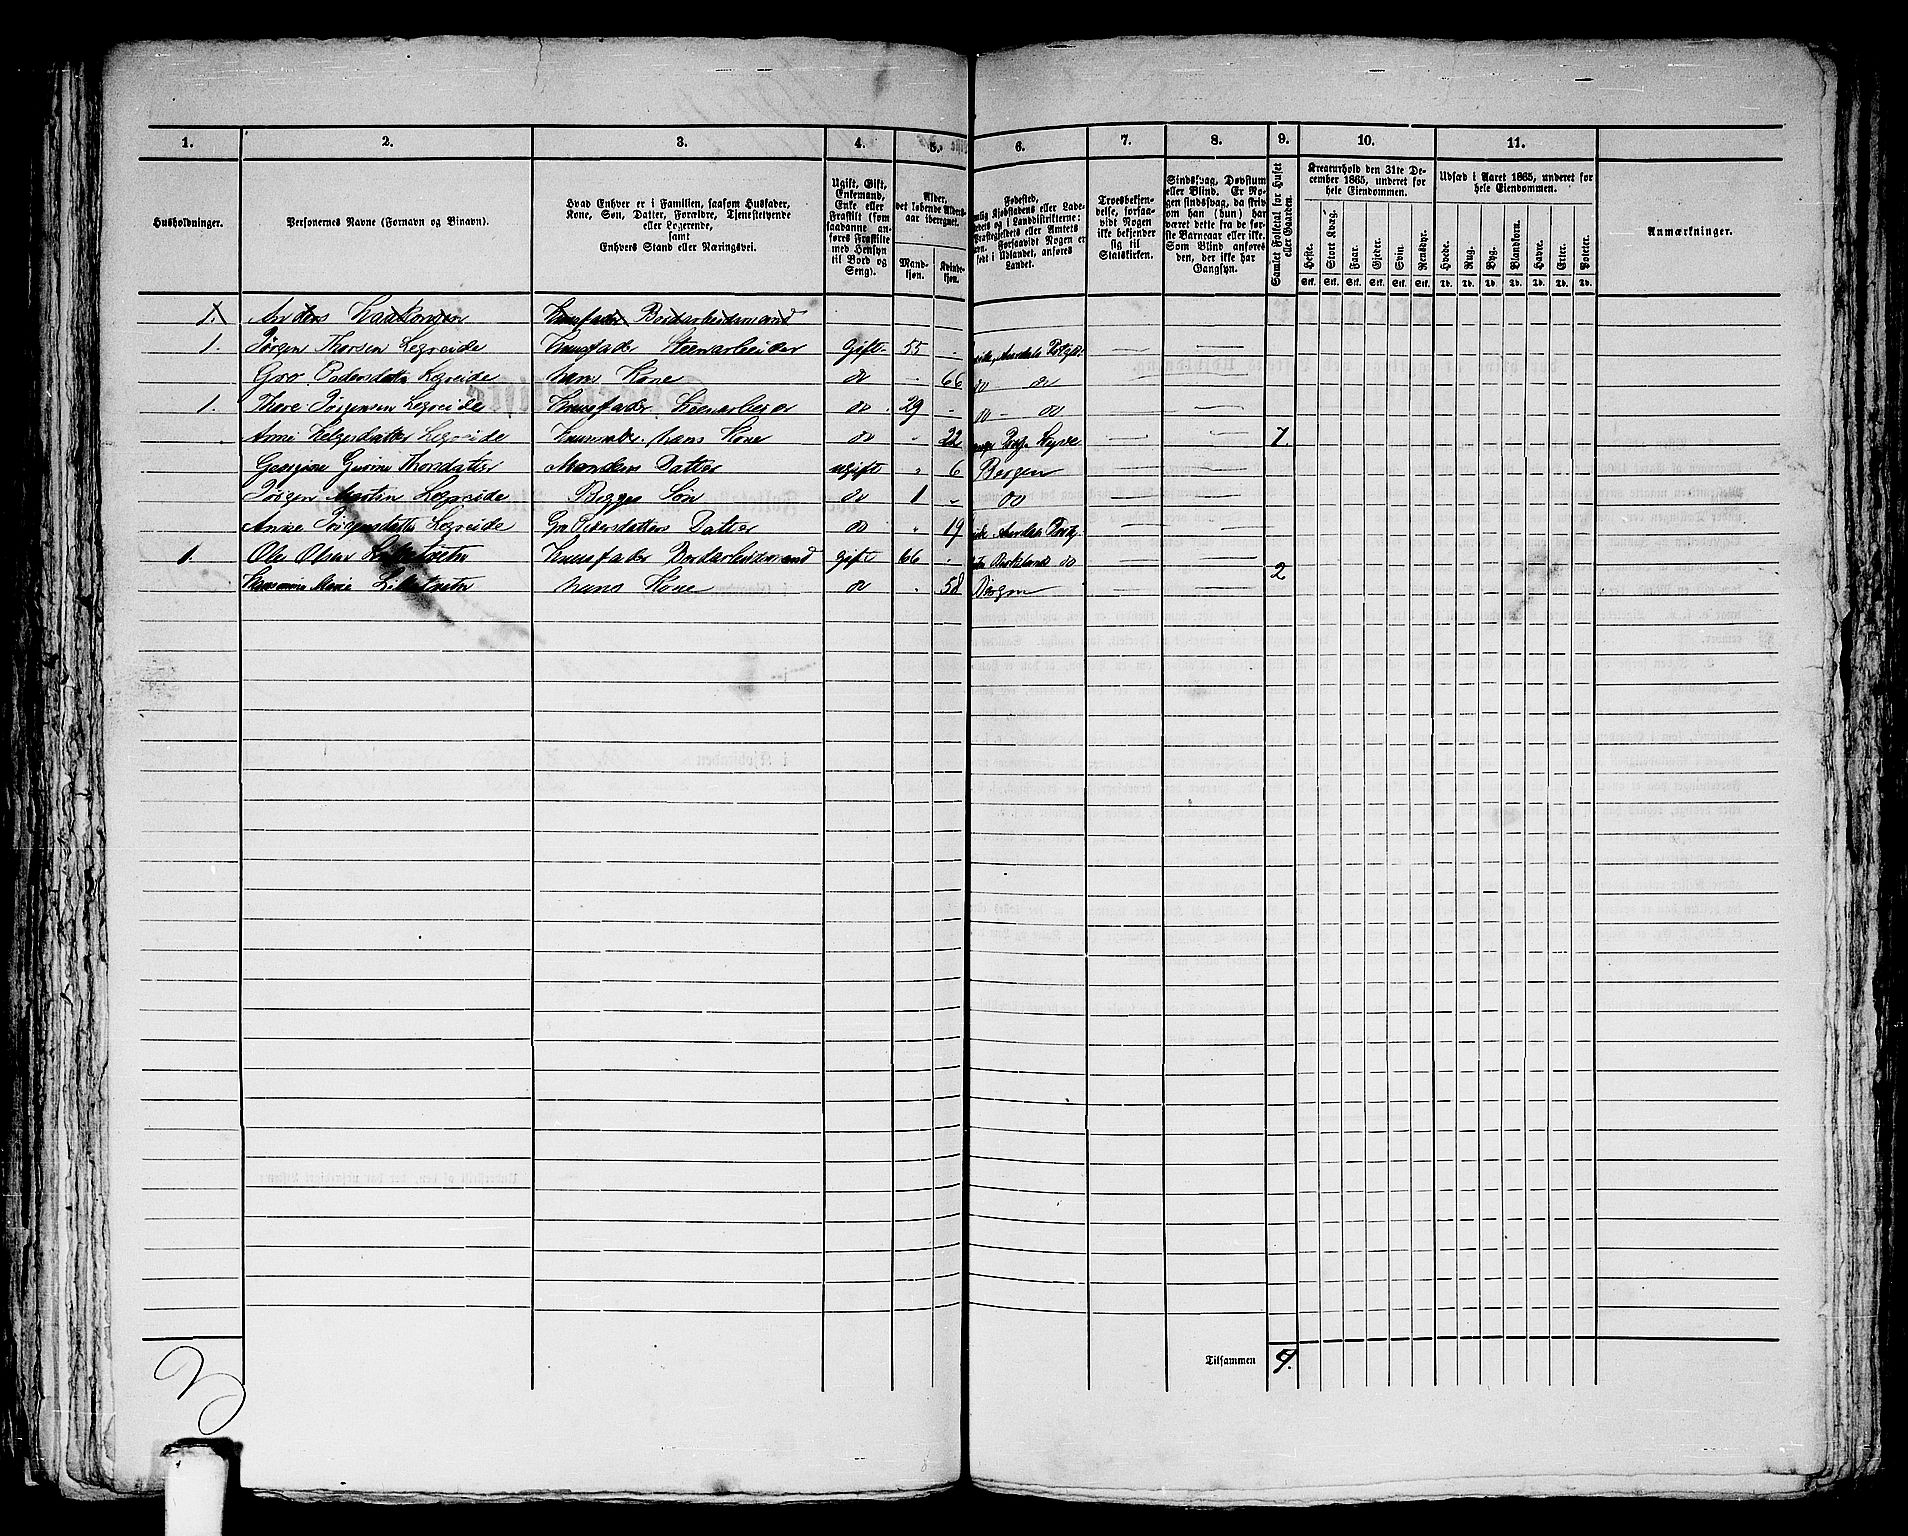 1. 2. 3. 4. 5. 6. 7. 8. 9. 10. 11.
Husholdninger.
Personernes Navne (Fornavn og Binavn).
Hvad Enhver er i Familien, saasom Husfader,
Kone, Søn, Datter, Forældre, Tjenestetyende
eller Logerende,
samt
Enhvers Stand eller Næringsvei.
Ugift, Gift,
Enkemand,
Enke eller
Fraskilt (som
saadanne an-
føres Fraskilte
med Hensyn
til Bord og
Seng).
Alder,
det løbende Alders-
aar iberegnet.
Mand-
kjøn.
Kvinde-
kjøn.
Fødested,
Landet.
Troesbekjen-
delse, forsaa-
vidt Nogen
ikke bekjender
sig til
Statskirken.
Sindssvag, Døvstum
eller Blind. Er No-
gen sindssvag, da skriv
om han (hun) har
været dette fra de før-
ste Barneaar eller ikke.
Som Blind anføres
den, der ikke har
Gangsyn.
Samlet Folketal for Huset
eller Gaarden.
Kreaturhold den 31te De-
cember 1865, underet for
hele Eiendommen.
Heste. Stort Kvæg. Faar. Gjeder. Svin. Rensdyr.
Stk. Stk. Stk. Stk. Stk. Stk.
Udsæd i Aaret 1865, underet for
hele Eiendommen.
Hvede. Rug. Byg. Blandkorn. Havre. Erter. Poteter.
Td. Td. Td. Td. Td. Td. Td.
Anmærkninger.
1. Anders Haakonsen Huusfader Bordarbeidsmand
1. Jørgen Thorsen Legreide Huusfader Steenarbeider Gift 55 -
Gro Pedersdatter Legreide hans Kone do - 66 do do
1. Thore Jørgensen Legreide Huusfader Steenarbeider do 29 - do - do
Anne Helgesdatter Legreide hans Kone do " 22 7.
Georgine Gurine Thorsdatter Mandens Datter ugift " 6 Bergen
Jørgen Martin Legreide Begges Søn do 1 - do
Anne Jørgensdatter Legreide Gro Pedersdatters Datter do " 19
1. Ole Olsen Huusfader Bordarbeidsmand gift 66 - Birkeland do
Marie hans Kone do " 58 Bergen 2
Tilsammen 9.